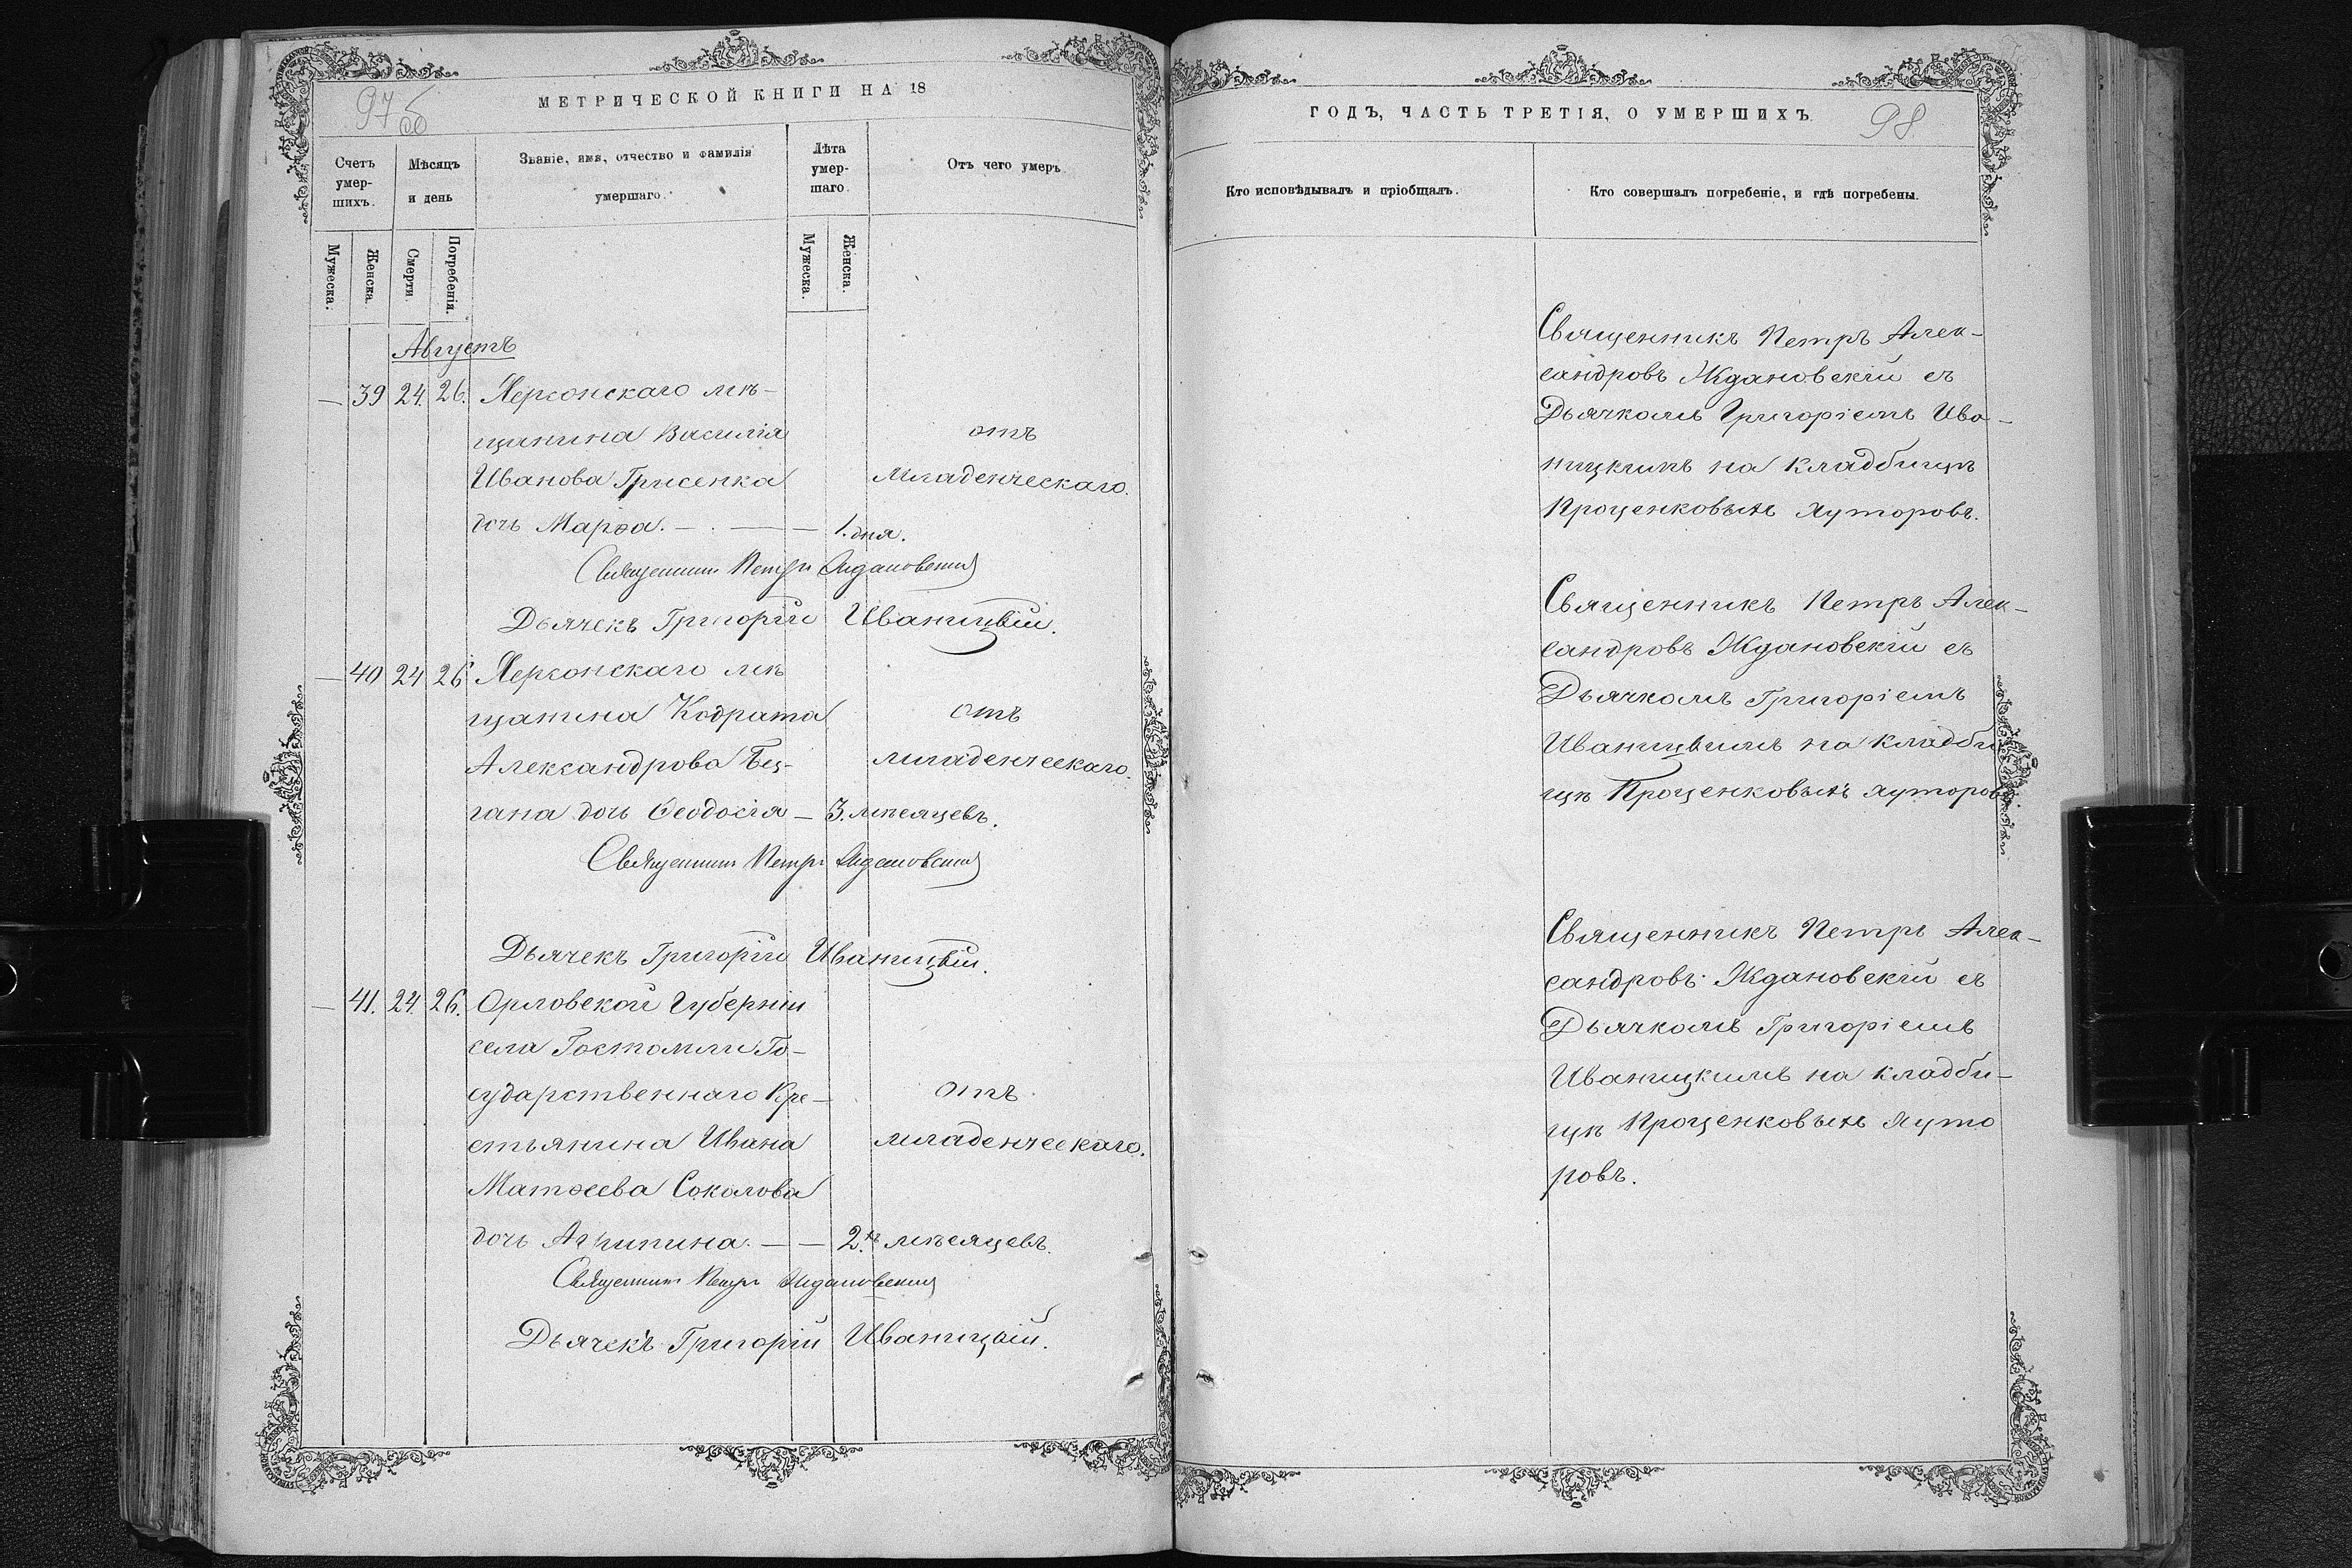 97 об
МЕТРИЧЕСКОЙ КНИГИ НА 18
Счетъ умер-шихъ.
Мѣсяцъ и день
Званіе, имя, отчество и фамилія умершаго.
Лѣта умер-шаго.
Отъ чего умеръ.
Мужеска.
Женска.
Смерти.
Погребенія.
Мужеска.
Женска.
Августъ
— 39 24. 26. Херсонскаго мѣ-
щанина Василія
отъ
Иванова Грисенка
младенческаго.
дочь Марѳа. — — 1. дня.
Священникъ Петръ Ждановскій
Дьячекъ Григорій Иваницкій.
— 40 24 26 Херсонскаго мѣ
щанина Кодрата
отъ
Александрова Бец-
младенческаго.
гана дочь Ѳеодосія — 3. мѣсяцевъ.
Священникъ Петръ Ждановскій
Дьячекъ Григорій Иваницкій.
— 41. 24. 26. Орловской Губерніи
села Гостомли Го-
сударственнаго Кре-
отъ
стьянина Ивана
младенческаго.
Матѳеева Соколова
дочь Агрипина. — — 2.хъ мѣсяцевъ.
Священникъ Петръ Ждановскій
Дьячекъ Григорій Иваницкій.
ГОДЪ, ЧАСТЬ ТРЕТІЯ, О УМЕРШИХЪ.
98
Кто исповѣдывалъ и пріобщалъ.
Кто совершалъ погребеніе, и гдѣ погребены.
Священникъ Петръ Алек-
сандровъ Ждановскій съ
Дьячкомъ Григоріемъ Ива-
ницкимъ на кладбищѣ
Проценковыхъ хуторовъ.
Священникъ Петръ Алек-
сандровъ Ждановскій съ
Дьячкомъ Григоріемъ
Иваницкимъ на кладби
щѣ Проценковыхъ хуторовъ.
Священникъ Петръ Алек-
сандровъ Ждановскій съ
Дьячкомъ Григоріемъ
Иваницкимъ на кладби-
щѣ Проценковыхъ хуто
ровъ.